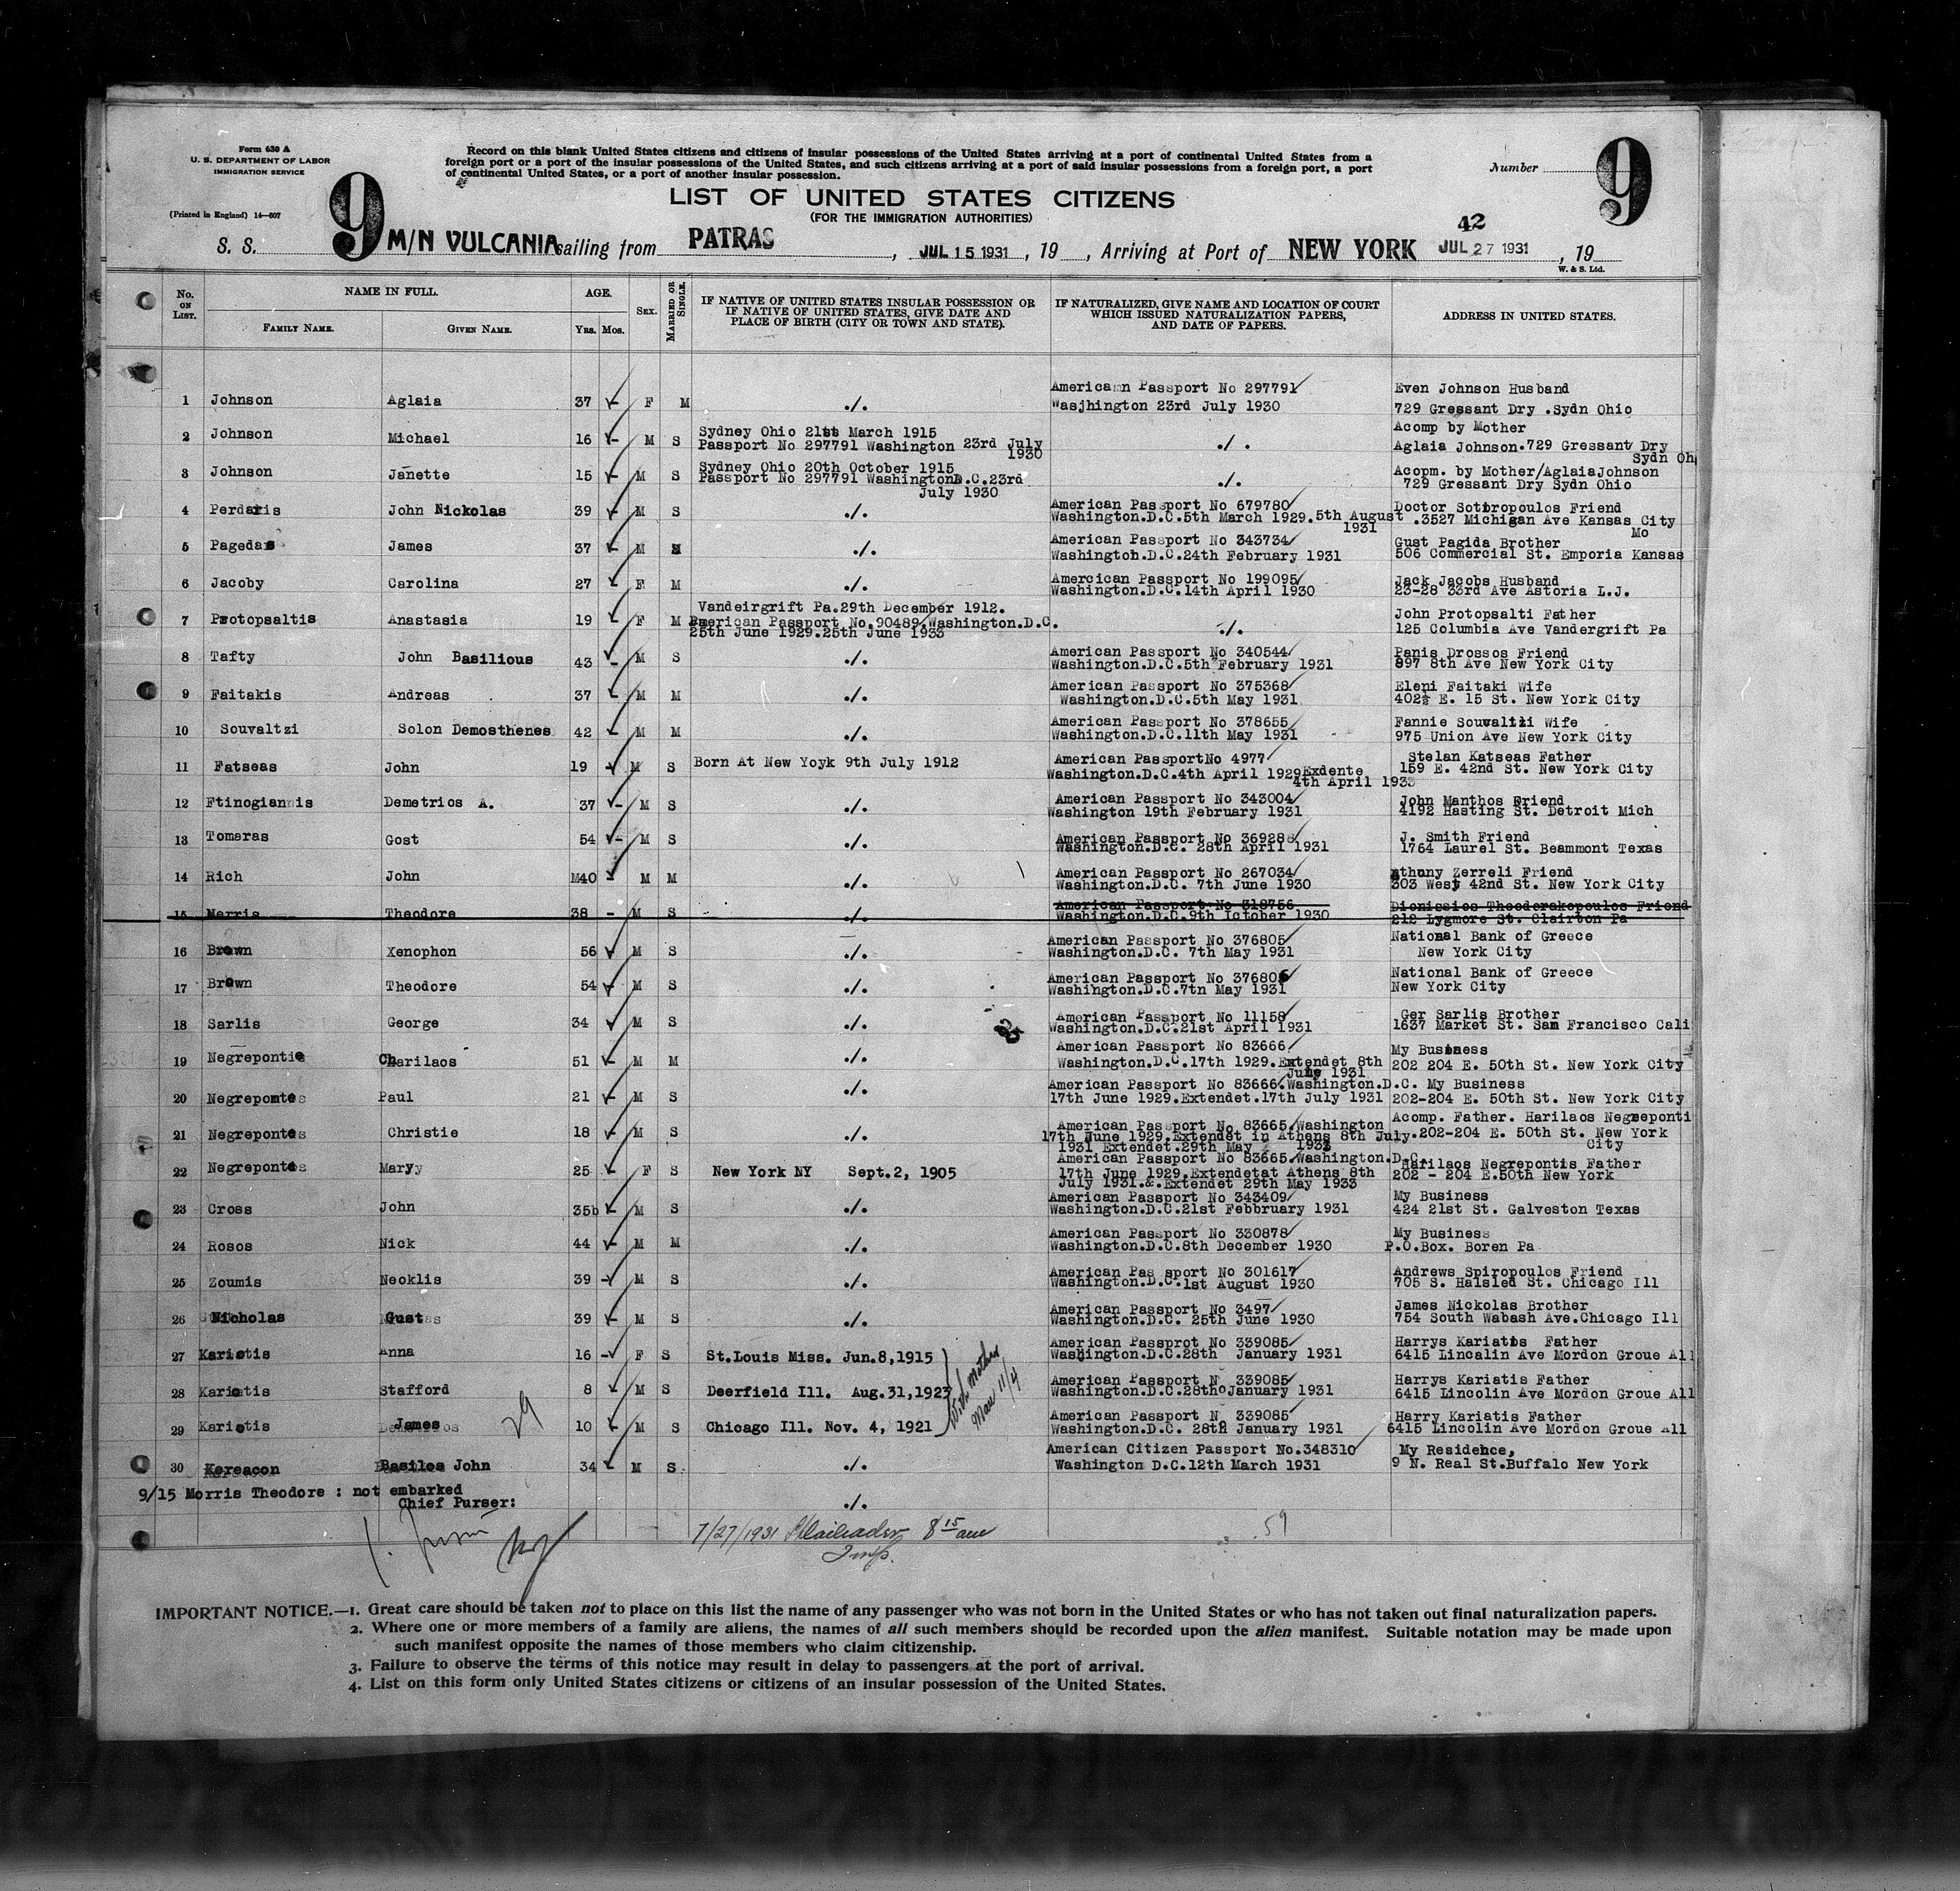 Form 630 A
U. S. DEPARTMENT OF LABOR
IMMIGRATION SERVICE
(Printed in England) 14—607
Record on this blank United States citizens and citizens of insular possessions of the United States arriving at a port of continental United States from a
foreign port or a port of the insular possessions of the United States, and such citizens arriving at a port of said insular possessions from a foreign port, a port
of continental United States, or a port of another insular possession.
Number 9
LIST OF UNITED STATES CITIZENS
(FOR THE IMMIGRATION AUTHORITIES)
42
S. S. 9 M/N VULCANIA sailing from PATRAS, JUL 15 1931, 19 , Arriving at Port of NEW YORK JUL 27 1931, 19
W. & S. Ltd.
No. ON LIST. NAME IN FULL. FAMILY NAME. GIVEN NAME. AGE. Yrs. Mos. SEX. MARRIED OR SINGLE. IF NATIVE OF UNITED STATES INSULAR POSSESSION OR IF NATIVE OF UNITED STATES, GIVE DATE AND PLACE OF BIRTH (CITY OR TOWN AND STATE). IF NATURALIZED, GIVE NAME AND LOCATION OF COURT WHICH ISSUED NATURALIZATION PAPERS, AND DATE OF PAPERS. ADDRESS IN UNITED STATES.
1 Johnson Aglaia 37 F M ./. American Passport No 297791 Wasjhington 23rd July 1930 Even Johnson Husband 729 Gressant Dry .Sydn Ohio
2 Johnson Michael 16 - M S Sydney Ohio 21st March 1915 Passport No 297791 Washington 23rd July 1930 ./. Acomp by Mother Aglaia Johnson.729 Gressant Dry Sydn Oh
3 Johnson Janette 15 - M S Sydney Ohio 20th October 1915 Passport No 297791 Washington D.C.23rd July 1930 ./. Acopm. by Mother/AglaiaJohnson 729 Gressant Dry Sydn Ohio
4 Perdaris John Nickolas 39 - M S ./. American Passport No 679780 Washington.D.C.5th March 1929.5th August 1931 Doctor Sotiropoulos Friend .3527 Michigan Ave Kansas City Mo
5 Pagedas James 37 - M ./. American Passport No 343734 Washington.D.C.24th February 1931 Gust Pagida Brother 506 Commercial St. Emporia Kansas
6 Jacoby Carolina 27 - F M ./. Amercican Passport No 199095 Washington.D.C.14th April 1930 Jack Jacobs Husband 23-28 33rd Ave Astoria L.J.
7 Protopsaltis Anastasia 19 - F M Vandeirgrift Pa.29th December 1912. American Passport No.90489 Washington.D.C. 25th June 1929.25th June 1933 ./. John Protopsalti Father 125 Columbia Ave Vandergrift Pa
8 Tafty John Basilious 43 - M S ./. American Passport No 340544 Washington.D.C.5th February 1931 Panis Drossos Friend 897 8th Ave New York City
9 Faitakis Andreas 37 - M M ./. American Passport No 375368 Washington.D.C.5th May 1931 Eleni Faitaki Wife 402½ E. 15 St. New York City
10 Souvaltzi Solon Demosthenes 42 - M M ./. American Passport No 378655 Washington.D.C.11th May 1931 Fannie Souvaltzi Wife 975 Union Ave New York City
11 Fatseas John 19 - M S Born At New Yoyk 9th July 1912 American PassportNo 4977 Washington.D.C.4th April 1929Exdente 4th April 1933 Stelan Katseas Father 159 E. 42nd St. New York City
12 Ftinogiannis Demetrios A. 37 - M S ./. American Passport No 343004 Washington 19th February 1931 John Manthos Friend 4192 Hasting St. Detroit Mich
13 Tomaras Gost 54 - M S ./. American Passport No 369288 Washington.D.C. 28th April 1931 J. Smith Friend 1764 Laurel St. Beammont Texas
14 Rich John M40 - M M ./. American Passport No 267034 Washington.D.C. 7th June 1930 Athony Zerreli Friend 303 West 42nd St. New York City
15 Morris Theodore 38 - M S ./. American Passport No 318756 Washington.D.C.9th Ictober 1930 Dionissios Theoderakopoulos Friend 212 Lygmore St. Clairton Pa
16 Brown Xenophon 56 M S ./. American Passport No 376805 Washington.D.C. 7th May 1931 National Bank of Greece New York City
17 Brown Theodore 54 - M S ./. American Passport No 376806 Washington.D.C.7tn May 1931 National Bank of Greece New York City
18 Sarlis George 34 M S ./. American Passport No 11158 Washington.D.C.21st April 1931 Ger Sarlis Brother 1637 Market St. San Francisco Cali
19 Negrepontis Charilaos 51 - M M ./. American Passport No 83666 Washington.D.C.17th 1929.Extendet 8th June 1931 My Business 202 204 E. 50th St. New York City
20 Negrepontes Paul 21 - M S ./. American Passport No 83666.Washington.D.C. 17th June 1929.Extendet.17th July 1931 My Business 202-204 E. 50th St. New York City
21 Negrepontes Christie 18 - M S ./. American Passport No 83665 Washington 17th June 1929.Extendet in Athens 8th July. 1931 Extendet.29th May 1933 Acomp. Father. Harilaos Negreponti .202-204 E. 50th St. New York City
22 Negrepontes Mary 25 - F S New York NY Sept.2, 1905 American Passport No 83665 Washington.D.C. 17th June 1929.Extendetat Athens 8th July 1931.&.Extendet 29th May 1933 Harilaos Negrepontis Father 202 - 204 E.50th New York
23 Cross John 35b - M S ./. American Passport No 343409 Washington.D.C.21st Febbruary 1931 My Business 424 21st St. Galveston Texas
24 Rosos Nick 44 - M M ./. American Passport No 330878 Washington.D.C.8th December 1930 My Business P.O.Box. Boren Pa
25 Zoumis Neoklis 39 - M S ./. American Pas sport No 301617 Washington.D.C.1st August 1930 Andrews Spiropoulos Friend 705 S. Halsled St. Chicago Ill
26 Nicholas Gust 39 - M S ./. American Passport No 3497 Washington.D.C. 25th June 1930 James Nickolas Brother 754 South Wabash Ave.Chicago Ill
27 Kariotis Anna 16 - F S St.Louis Miss. Jun.8,1915 American Passprot No 339085 Washington.D.C.28th January 1931 Harrys Kariatis Father 6415 Lincalin Ave Mordon Groue All
28 Kariotis Stafford 8 - M S Deerfield Ill. Aug.31,1923 American Passport N 339085 Washington.D.C.28tho January 1931 Harrys Kariatis Father 6415 Lincolin Ave Mordon Groue All
With mother Man 11/4
29 Kariotis James 29 10 - M S Chicago Ill. Nov. 4, 1921 American Passport N 339085 Washington.D.C. 28th January 1931 Harry Kariatis Father 6415 Lincolin Ave Mordon Groue All
30 Kereacon Basilos John 34 - M S ./. American Citizen Passport No.348310 Washington D.C.12th March 1931 My Residence, 9 N. Real St.Buffalo New York
9/15 Morris Theodore : not embarked
Chief Purser: ./.
7/27/1931 8 15 am 59
Insp.
IMPORTANT NOTICE.—1. Great care should be taken not to place on this list the name of any passenger who was not born in the United States or who has not taken out final naturalization papers.
2. Where one or more members of a family are aliens, the names of all such members should be recorded upon the alien manifest. Suitable notation may be made upon
such manifest opposite the names of those members who claim citizenship.
3. Failure to observe the terms of this notice may result in delay to passengers at the port of arrival.
4. List on this form only United States citizens or citizens of an insular possession of the United States.